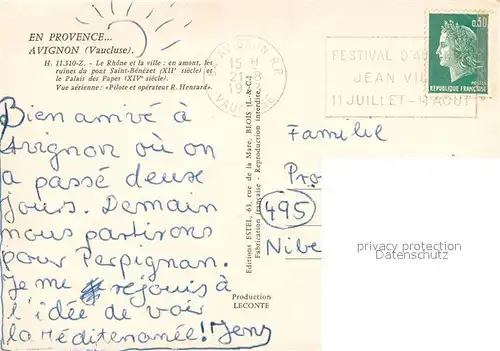 EN PROVENCE...
AVIGNON (Vaucluse).
H. 11.310-Z. - Le Rhône et la ville : en amont, les
ruines du pont Saint-Bénézet (XIIe siècle) et
le Palais des Papes (XIVe siècle).
Vue aérienne : «Pilote et opérateur R. Henrard».
Bien arrivé à
Avignon où on
a passé deux
jours. Demain
nous partirons
pour Perpignan.
Je me réjouis à
l'idée de voir
la Méditenanée! Jens
Editions ESTEL, 63, rue de la Mare, BLOIS (L.-&-C.)
Fabrication française - Reproduction interdite.
Production
LECONTE
AVIGNON R.P.
15 H
21-8
19
VAUCLUSE
FESTIVAL D'A
JEAN VIL
11 JUILLET - 14 AOUT
0,30
REPUBLIQUE FRANÇAISE
POSTES
Familie
Pro
495
Nibe
privacy protection
Datenschutz